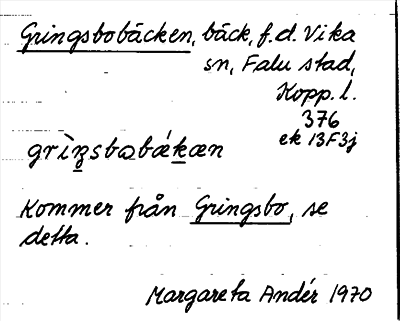 Gringsbobäcken, bäck, f.d. Vika
sn, Falu stad,
Kopp. l.
376
ek 13F3j
grìŋsbωbǽkæn
Kommer från Gringsbo, se
detta.
Margareta Andér 1970